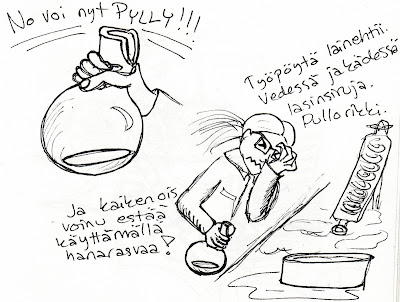 No voi nyt PYLLY!!!
Työpöytä lainehtii
vedessä ja kädessä
lasinsiruja.
Pullo rikki.
Ja kaiken ois
voinu estää
käyttämällä
hanarasvaa!